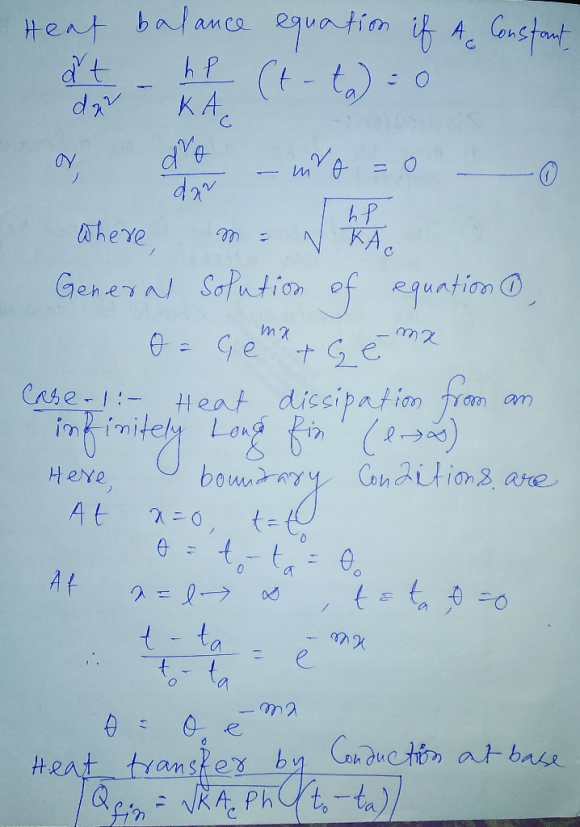 Heat balance equation if A_c Constant.
d²t/dx² - hP/KA_c (t - t_a) = 0
or, d²θ/dx² - m²θ = 0 —— ①
Where, m = √(hP/KA_c)
General Solution of equation ①,
θ = C₁e^mx + C₂e^-mx
Case-1:- Heat dissipation from an
infinitely Long fin (l→∞)
Here, boundary Conditions are
At x=0, t=t₀
θ = t₀-t_a = θ₀
At x = l → ∞, t = t_a, θ = 0
∴ (t - t_a)/(t₀ - t_a) = e^-mx
θ = θ₀ e^-mx
Heat transfer by Conduction at base
Q_fin = √KA_c Ph (t₀-t_a)